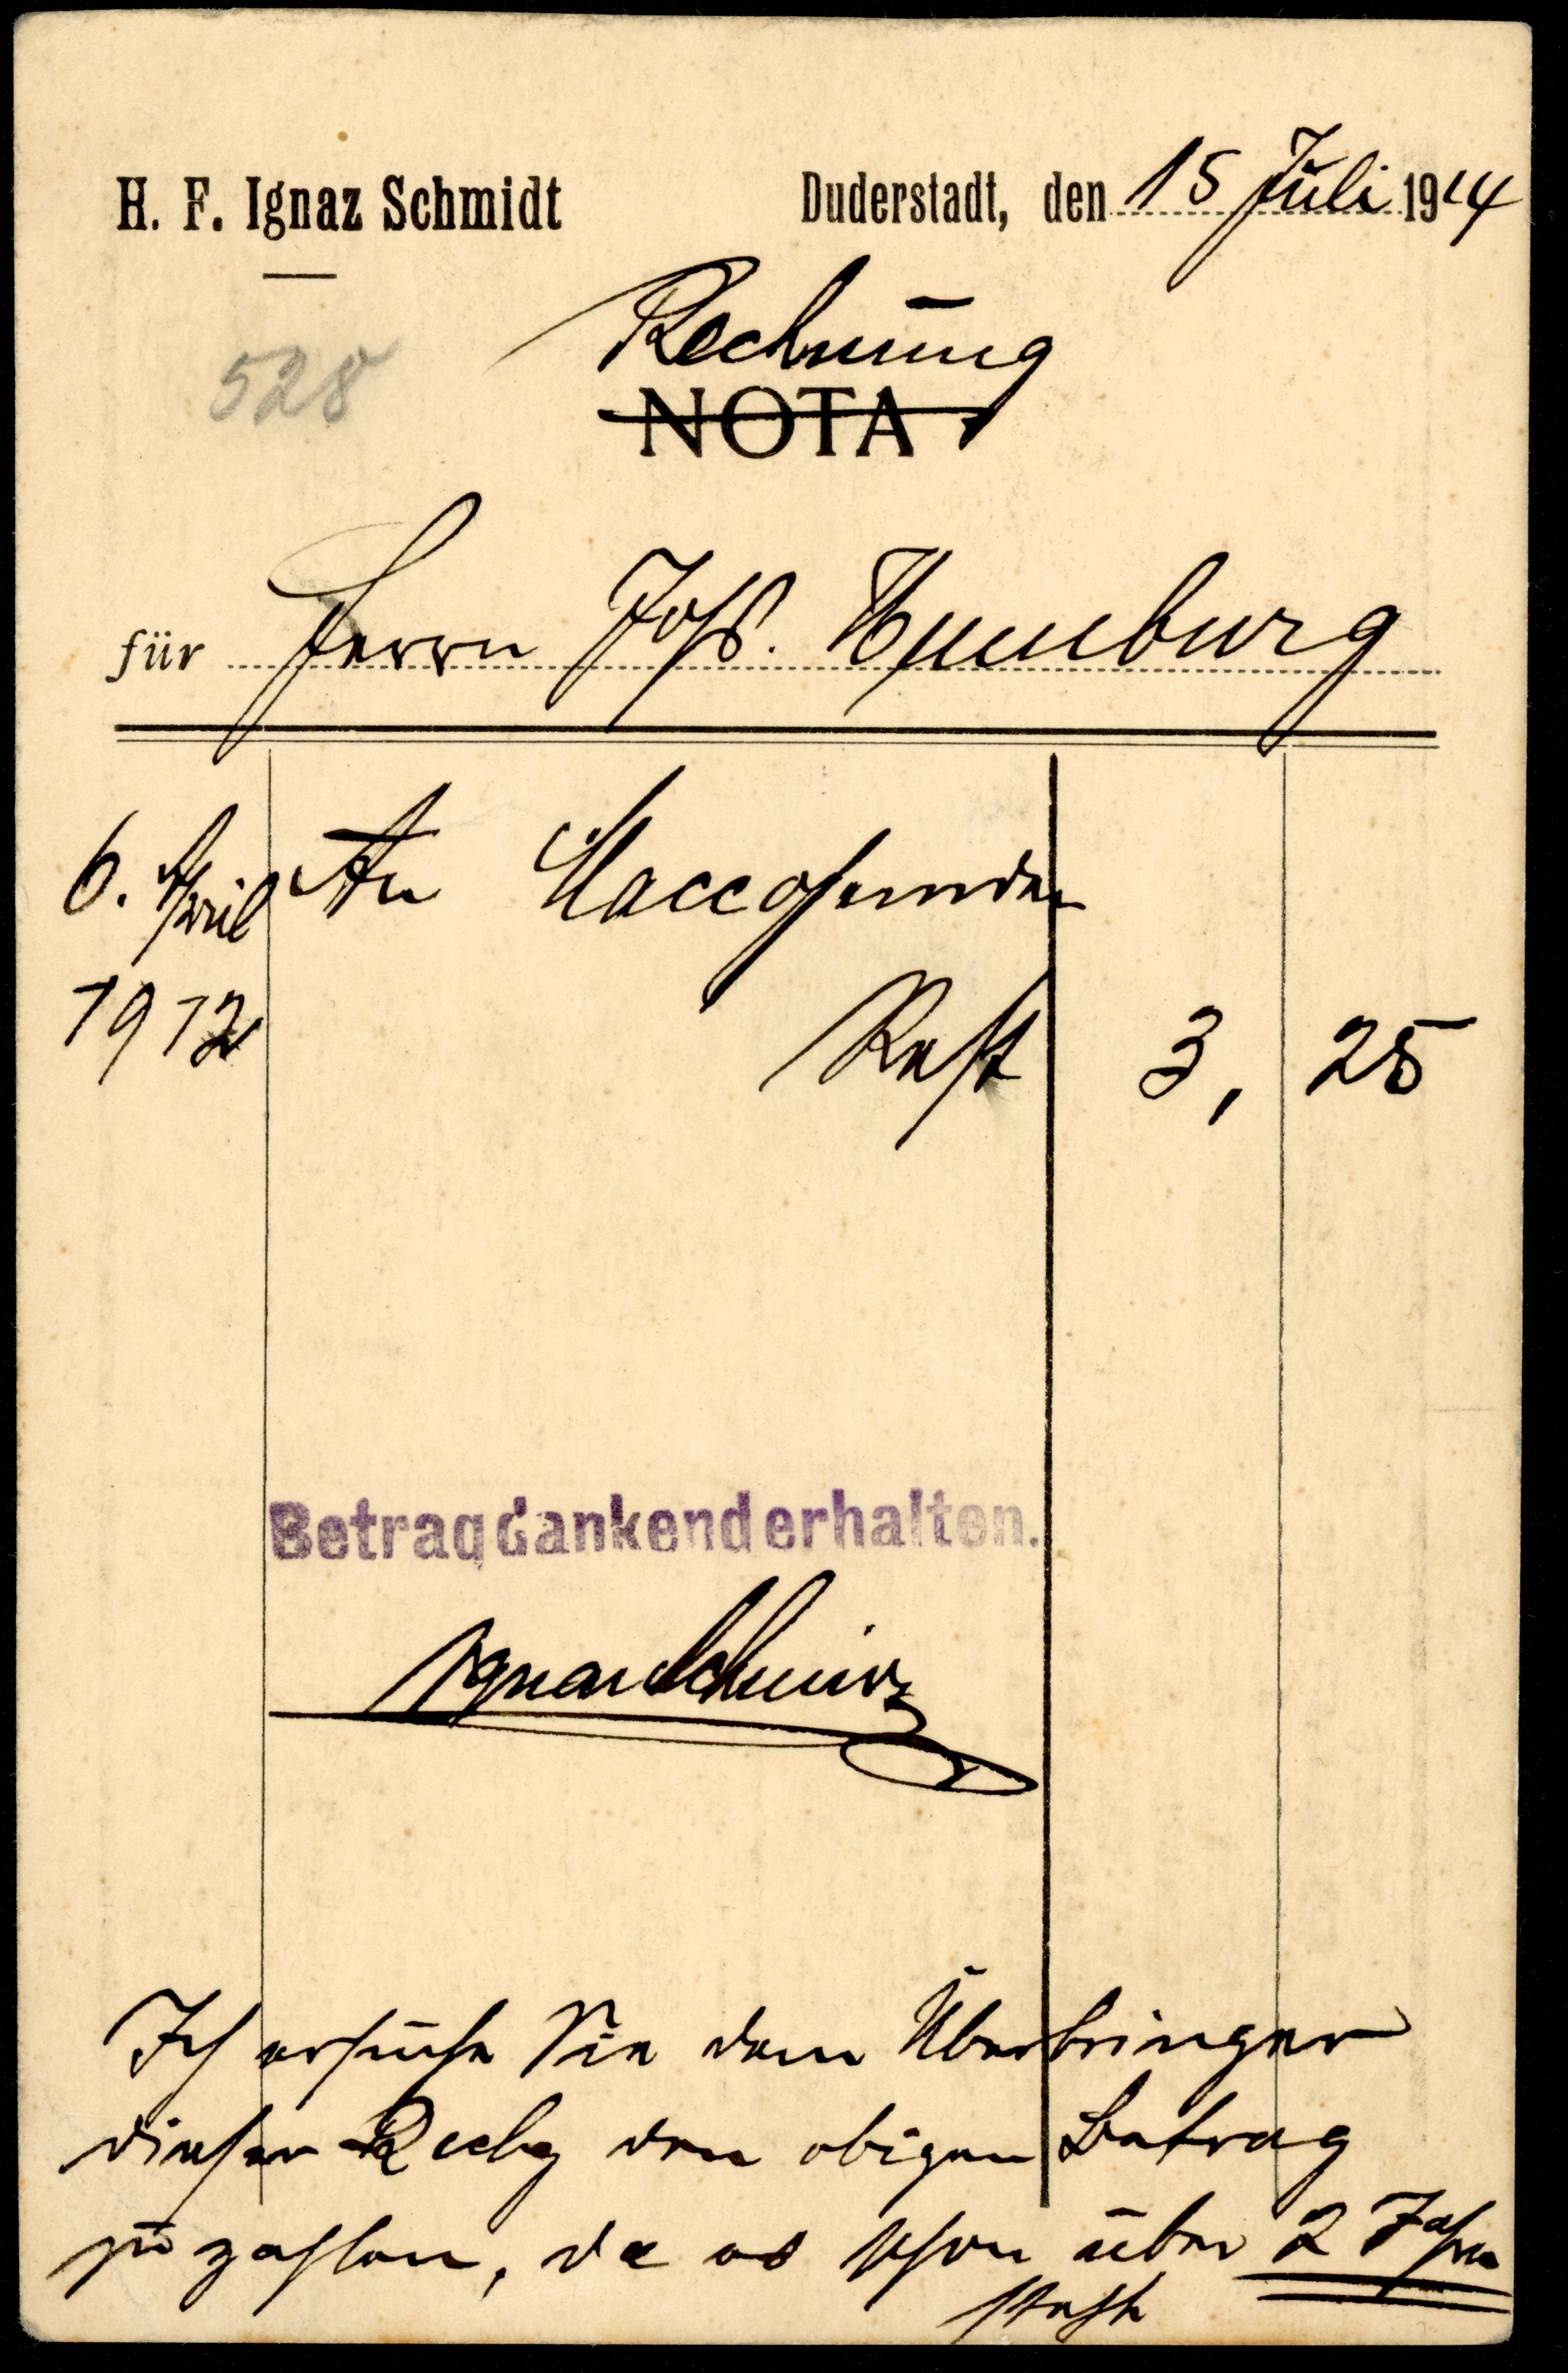 H. F. Ignaz Schmidt
Duderstadt, den 15 Juli 1914
528
Rechnung
NOTA
für Herrn Jos. Hunburg
6. April An Maccohemden
1912
Rest 3, 25
Betrag dankend erhalten.
Ignaz Schmidt
Ich ersuche Sie dem Überbringer
dieser Rechg den obigen Betrag
zu zahlen, da es schon über 2 Jahre
steht